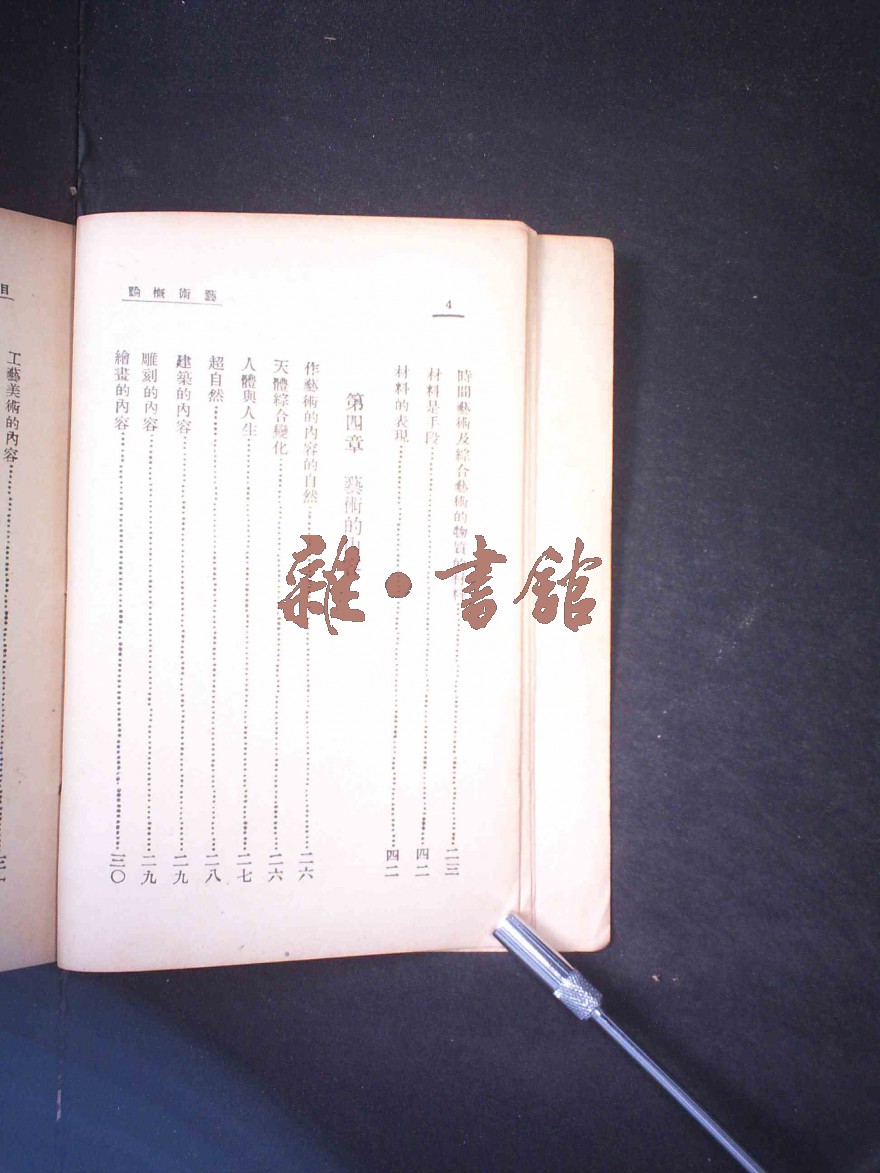 4
藝術概論
時間藝術及綜合藝術的物質……二三
材料是手段……四二
材料的表現……四二
第四章 藝術的內
作藝術的內容的自然……二六
天體綜合變化……二六
人體與人生……二七
超自然……二八
建築的內容……二九
雕刻的內容……二九
繪畫的內容……三〇
目
工藝美術的內容……
雜·書館